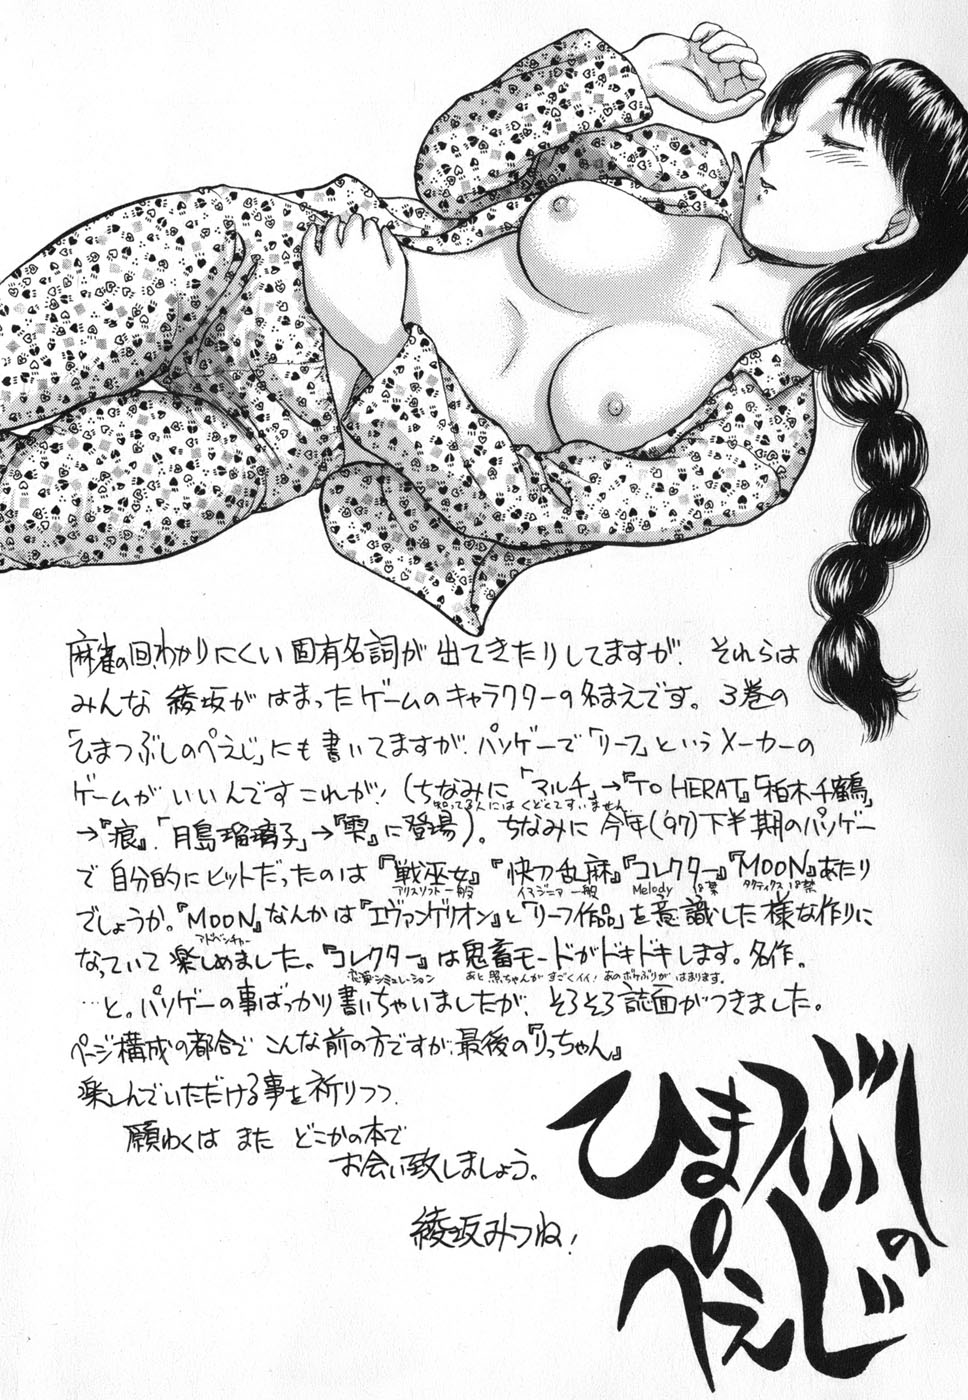 麻雀の回わかりにくい固有名詞が出てきたりしてますが、それらは
みんな綾坂がはまったゲームのキャラクターの名まえです。3巻の
「ひまつぶしのぺえじ」にも書いてますが、パソゲーで「リーフ」というメーカーの
ゲームがいいんですこれが!(ちなみに「マルチ」→『TO HERAT』、「柏木千鶴」
知ってる人にはくどくてすいません
→『痕』、「月島瑠璃子」→『雫』に登場)。ちなみに今年('97)下半期のパソゲー
で自分的にヒットだったのは『戦巫女』『快刀乱麻』『コレクター』『MOON』あたり
アリスソフト 一般 イマジニア 一般 Melody 18禁 タクティクス 18禁
でしょうか。『MOON』なんかは『エヴァンゲリオン』と「リーフ作品」を意識した様な作りに
アドベンチャー
なっていて楽しめました。『コレクター』は鬼畜モードがドキドキします。名作。
恋愛シミュレーション あと照ちゃんがすごくイイ!あのボケぶりがはまります。
…と。パソゲーの事ばっかり書いちゃいましたが、そろそろ誌面がつきました。
ページ構成の都合でこんな前の方ですが、最後の『りっちゃん』
楽しんでいただける事を祈りつつ、
願わくはまたどこかの本で
お会い致しましょう。
綾坂みつね!
ひまつぶしの
ぺえじ